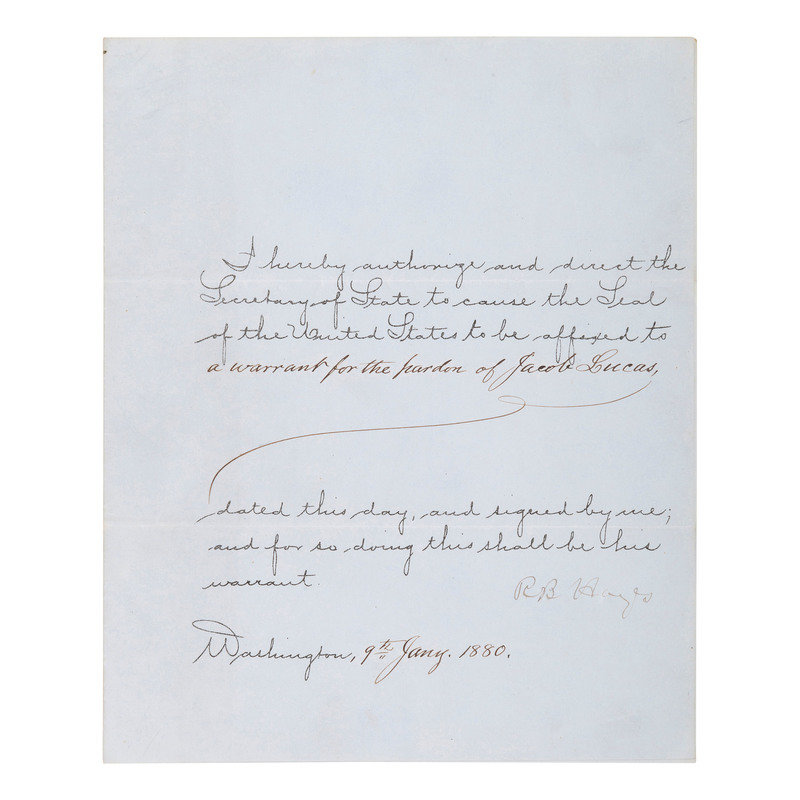 I hereby authorize and direct the
Secretary of State to cause the Seal
of the United States to be affixed to
a warrant for the pardon of Jacob Lucas,
dated this day, and signed by me;
and for so doing this shall be his
warrant.
R B Hayes
Washington, 9th Jany. 1880.